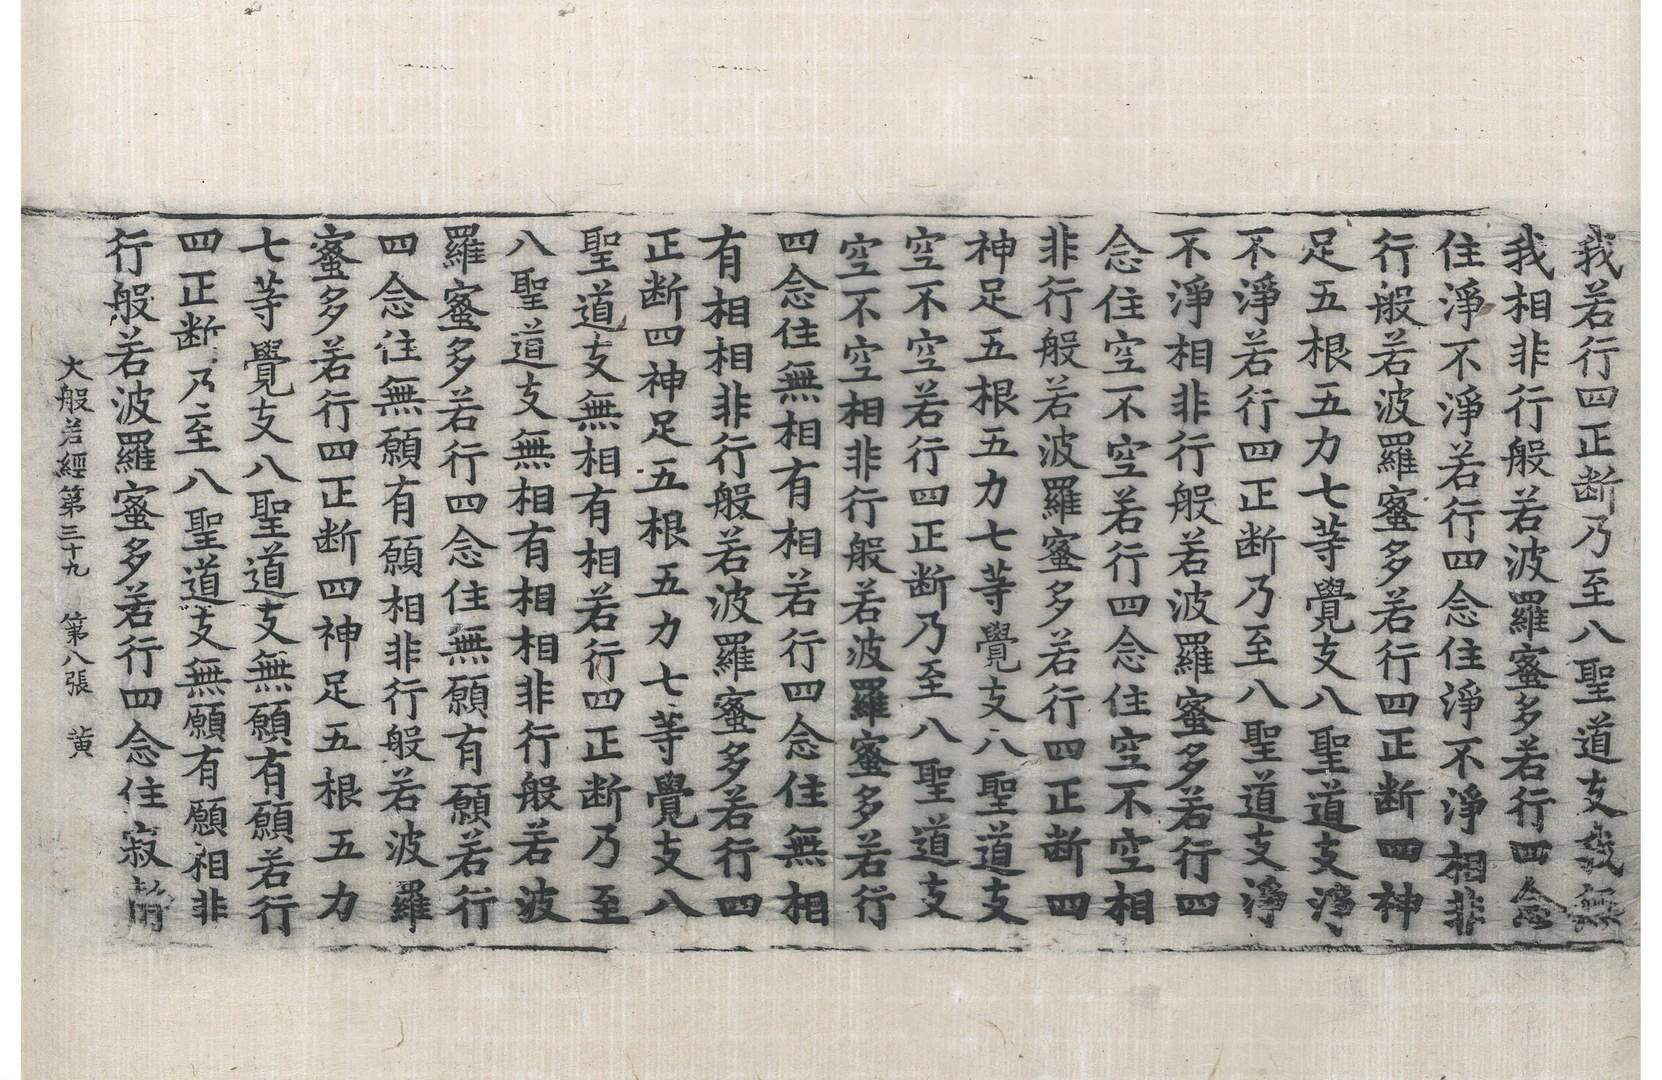 我若行四正断乃至八聖道支我無
我相非行般若波羅蜜多若行四念
住淨不淨若行四念住淨不淨相非
行般若波羅蜜多若行四正断四神
足五根五力七等覺支八聖道支淨
不淨若行四正断乃至八聖道支淨
不淨相非行般若波羅蜜多若行四
念住空不空若行四念住空不空相
非行般若波羅蜜多若行四正断四
神足五根五力七等覺支八聖道支
空不空若行四正断乃至八聖道支
空不空相非行般若波羅蜜多若行
四念住無相有相若行四念住無相
有相相非行般若波羅蜜多若行四
正断四神足五根五力七等覺支八
聖道支無相有相若行四正断乃至
八聖道支無相有相相非行般若波
羅蜜多若行四念住無願有願若行
四念住無願有願相非行般若波羅
蜜多若行四正断四神足五根五力
七等覺支八聖道支無願有願若行
四正断乃至八聖道支無願有願相非
行般若波羅蜜多若行四念住寂靜
大般若經第三十九 第八張 黄